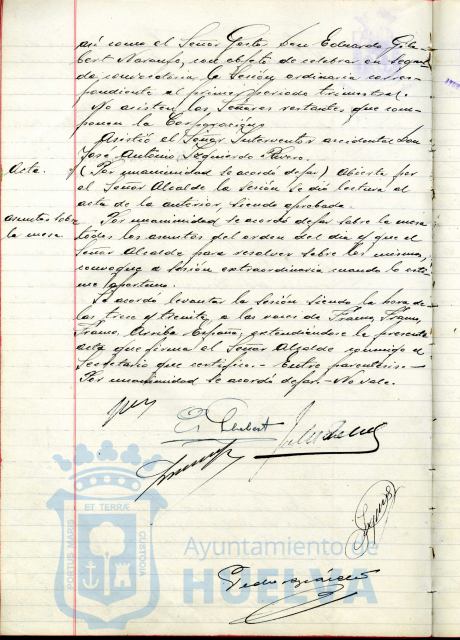 así como el Señor Gestor Don Eduardo Gilabert
Naranjo, con objeto de celebrar en segunda
convocatoria la Sesión ordinaria correspondiente
al primer periodo trimestral.
No asisten los Señores restantes que componen
la Corporación.
Asistió el Señor Interventor accidental Don
José Antonio Izquierdo
Acta.
(Por unanimidad se acordó dejar) Abierta por
el Señor Alcalde la Sesión se dió lectura al
acta de la anterior, siendo aprobada.
asuntos sobre
la mesa
Por unanimidad se acordó dejar sobre la mesa
todos los asuntos del orden del día y que el
Señor Alcalde para resolver sobre los mismos,
convoque a sesión extraordinaria cuando lo estime
oportuno.
Se acordó levantar la sesión siendo la hora de
las trece y treinta, a las voces de Franco, Franco,
Franco, Arriba España; extendiéndose la presente
acta que firma el Señor Alcalde conmigo el
Secretario que certifico.- Entre parentesis=
Por unanimidad se acordó dejar.- No vale.
PORTUS MARIS
ET TERRÆ
CUSTODIA
Ayuntamiento de
HUELVA